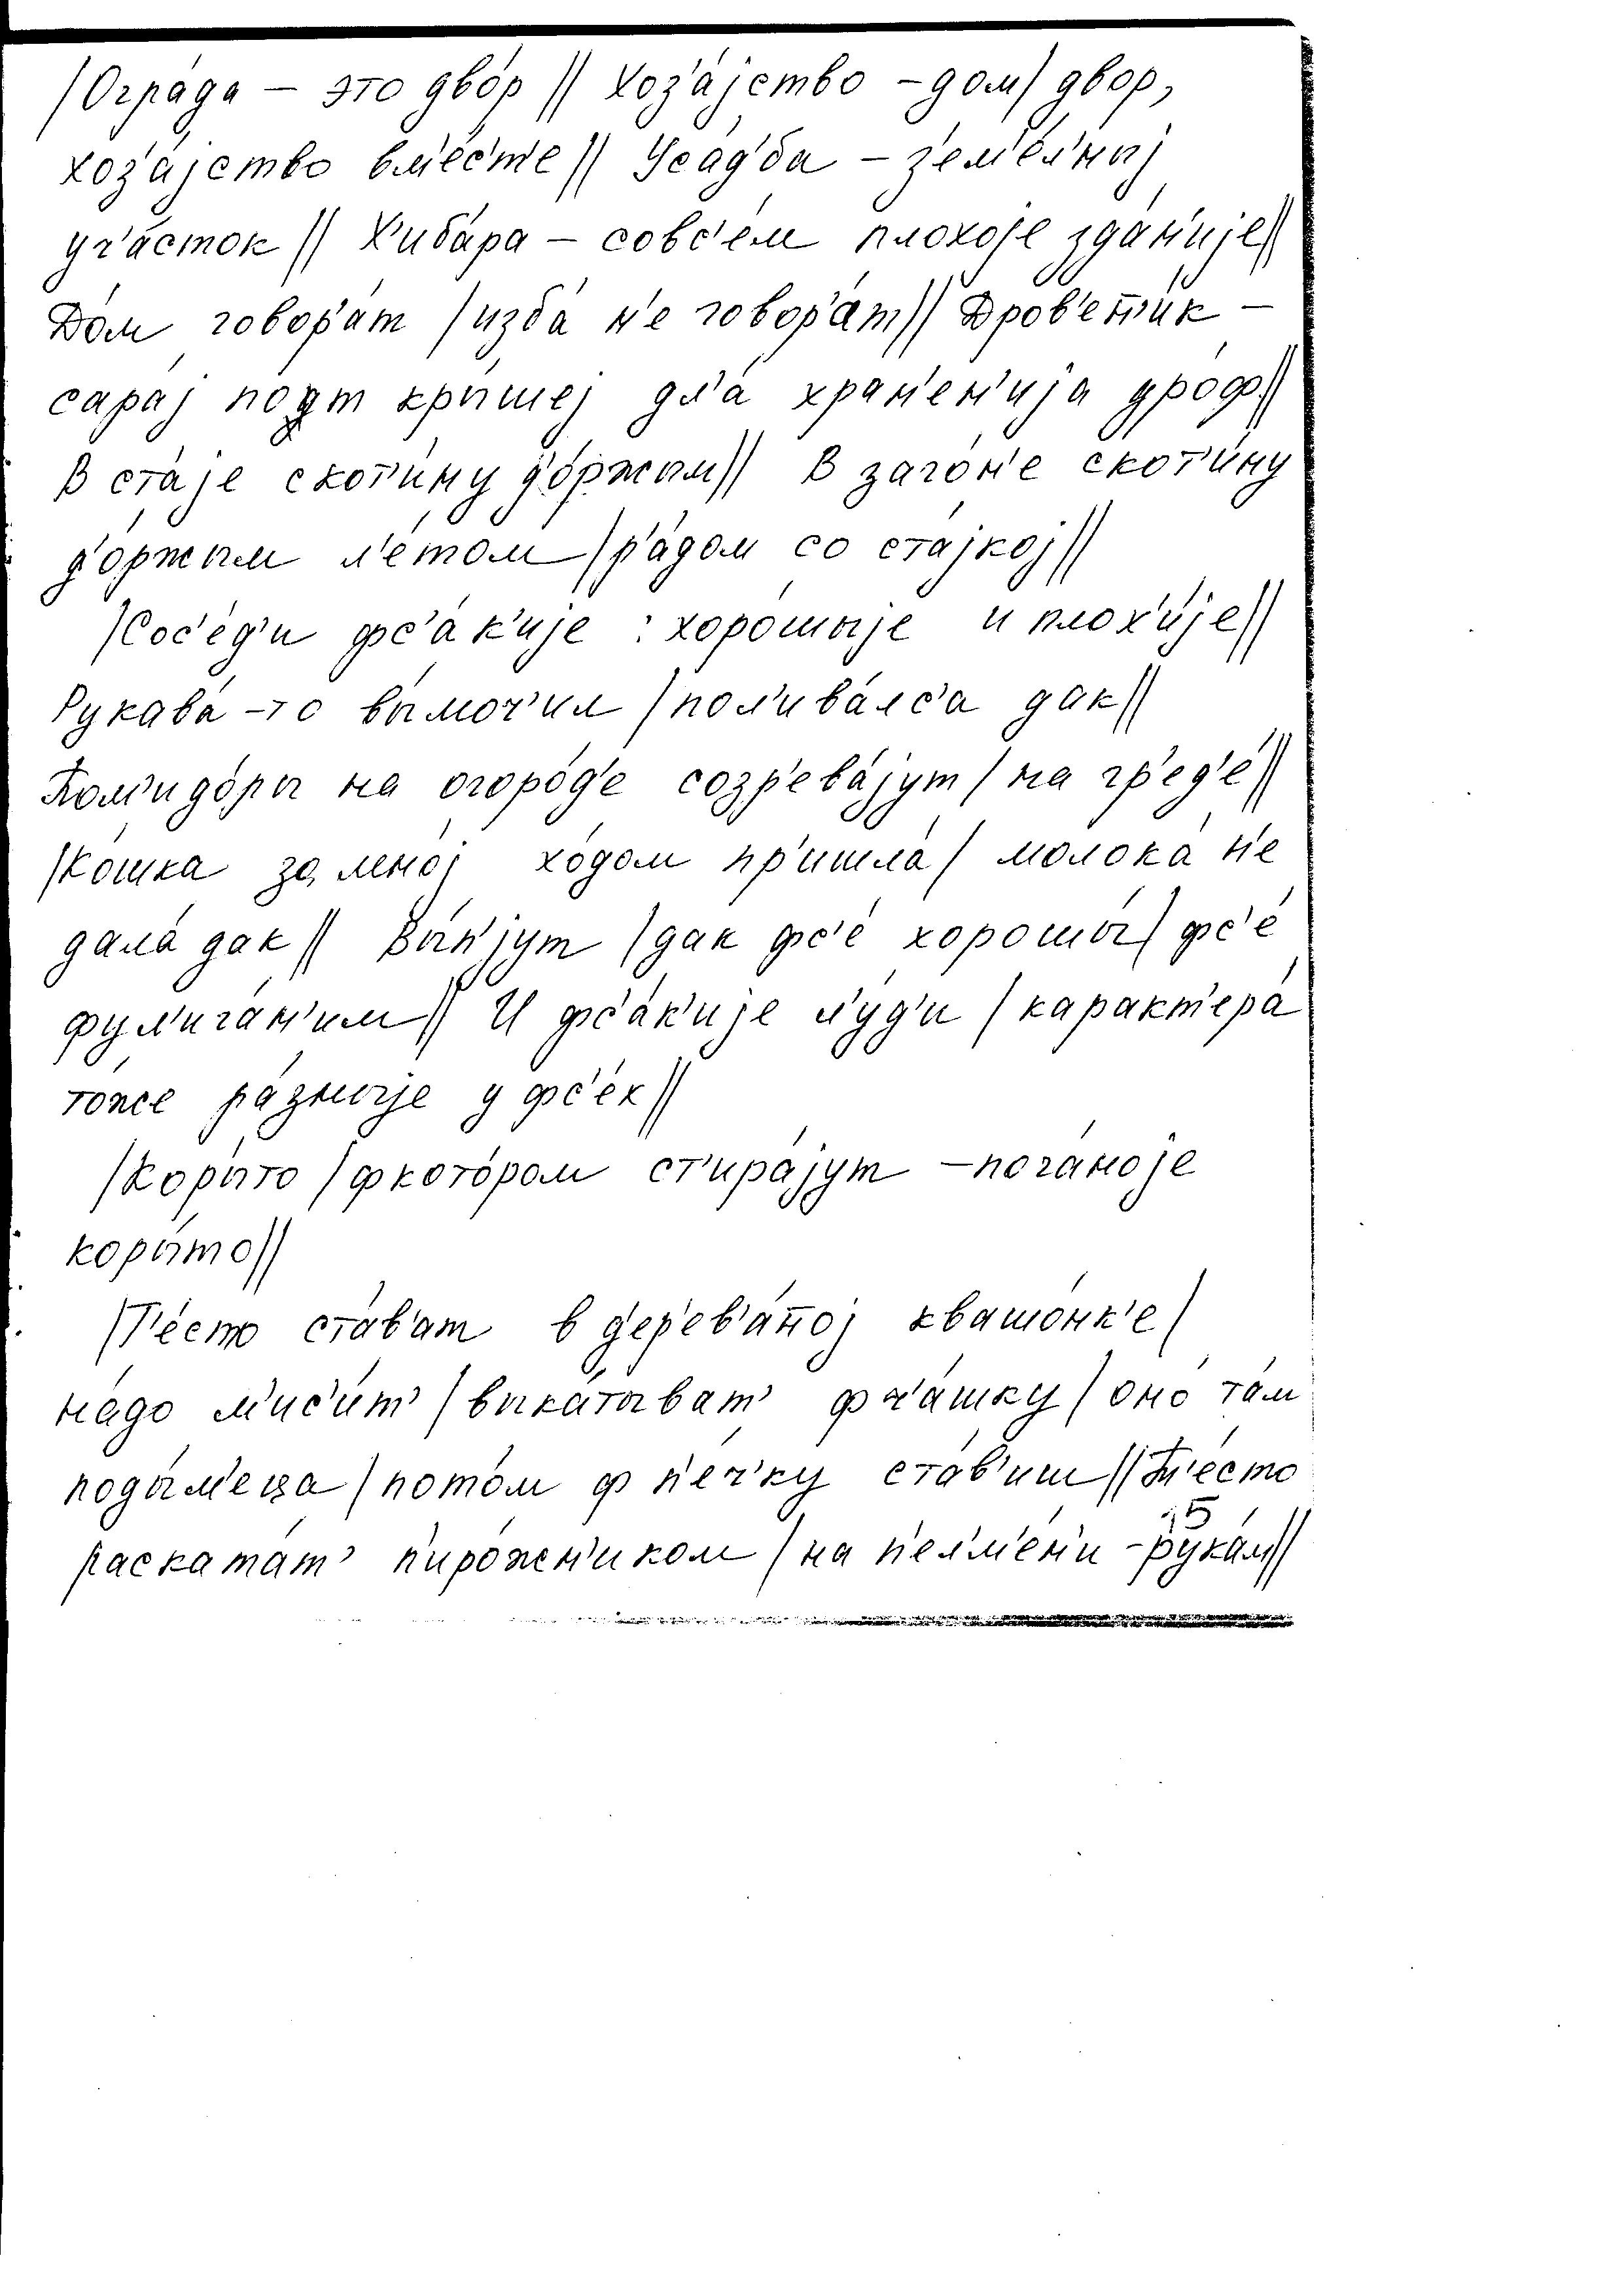 /Огра́да – это дво́р // Хоз'а́јство – дом/ двор,
хоз'а́јство вм'е́с'т'е // Уса́д'ба – з'ем'е́л'ныј
уч'а́сток // Х'иба́ра – совс'е́м плохо́је зда́н'ије//
До́м говор'а́т /изба́ н'е говор'а́т// Дров'ен'и́к –
сара́ј подт кры́шеј дл'а́ хран'е́н'ија дро́ф//
В ста́је скот'и́ну д'о́ржым// В заго́н'е скот'и́ну
д'о́ржым л'е́том /р'а́дом со ста́јкој//
/Сос'е́д'и фс'а́к'ије : хоро́шыје и плох'и́је//
Рукава́-то вы́моч'ил /пол'ива́лс'а дак//
Пом'идо́ры на огоро́д'е созр'ева́јут / на гр'ед'е́//
/Ко́шка за мно́ј хо́дом пр'ишла́ / молока́ н'е
дала́ дак // Вы́п'јут /дак фс'е́ хорошы́/ фс'е́
фул'ига́н'им// И фс'а́к'ије л'у́д'и / характ'ера́
то́же ра́зныје у фс'е́х//
/Коры́то /ф кото́ром ст'ира́јут – пога́ноје
коры́то//
/Т'е́сто ста́в'ат в д'ер'ев'а́н̄ој квашо́нк'е/
на́до м'ис'и́т' /выка́тыват' фл'а́шку / оно́ та́м
поды́м'еца / пото́м ф п'е́ч'ку ста́в'иш // Т'е́сто
раската́т' п'иро́жн'иком / на п'ел'м'е́н'и – рука́м//
15